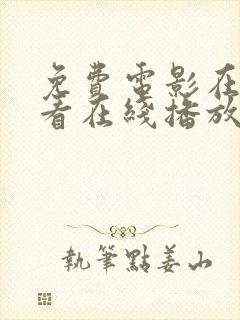 免費電影在
看在綫播放
執筆點姜山